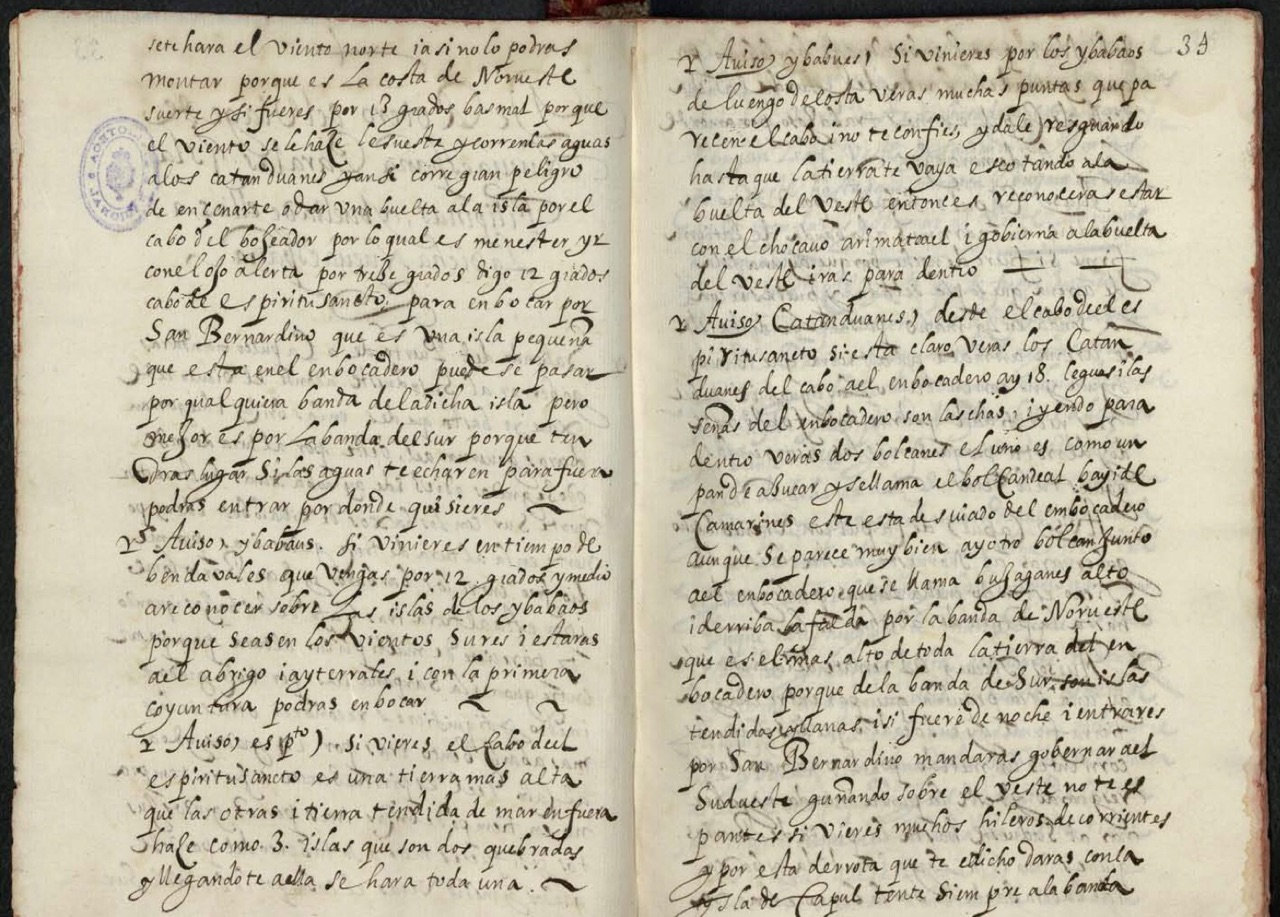 sete hara el viento norte i asi no lo podras
montar porque es La costa de Norueste
suerte y si fueres por 13 grados bas mal porque
el viento se le haze lesueste y corren las aguas
a los catanduanes y ansi corre gran peligro
de encenarte o dar una buelta a la isla por el
cabo del bojeador por lo qual es menester yr
con el ojo alerta por treze grados digo 12 grados
cabo de espiritusancto, para enbocar por
San Bernardino que es una isla pequeña
que esta en el enbocadero puede se pasar
por qualquiera banda de la dicha isla pero
mejor es por La banda del sur porque ten
dras lugar si las aguas te echaren para fuera
podras entrar por donde quisieres
Aviso, ybabaus. Si vinieres en tiempo de
bendavales que vengas por 12 grados y medio
a reconocer sobre Las islas de los ybabaos
porque seas en los vientos sures i estaras
ael abrigo i ay terrales i con la primera
coyuntura podras enbocar
Aviso, es pto) si vieres el Cabo del
espiritusancto es una tierra mas alta
que las otras i tierra tendida de mar en fuera
haze como 3. islas que son dos quebradas
y llegandote a ella se hara toda una.
34
Aviso, ybabues) Si vinieres por los ybabaos
de luengo de costa veras muchas puntas que pa
recen el cabo i no te confies, y dale resguardo
hasta que la tierra te vaya escotando a la
buelta del veste entonces reconoceras estar
con el cho cavo arimate ael i gobierna a la buelta
del veste iras para dentro
Aviso, Catanduanes,) desde el cabo del es
piritusancto si esta claro veras los Catan
duanes del cabo ael enbocadero ay 18. leguas i las
señas del enbocadero son las chas, i yendo para
dentro veras dos bolcanes el uno es como un
pan de asucar y se llama el bolcan de albay i de
Camarines este esta desviado del embocadero
aunque se parece muy bien ay otro bolcan junto
ael enbocadero que se llama bujaganes alto
i derriba la falda por la banda de Norueste
que es el mas alto de toda la tierra del en
bocadero porque de la banda de Sur son islas
tendidas y llanas, i si fuere de noche i entrares
por San Bernardino mandaras gobernar ael
Sudueste guiñando sobre el veste no te es
pantes si vieres muchos hileros de corrientes
y por esta derrota que te e dicho daras con la
ysla de Capul tente siempre a la banda